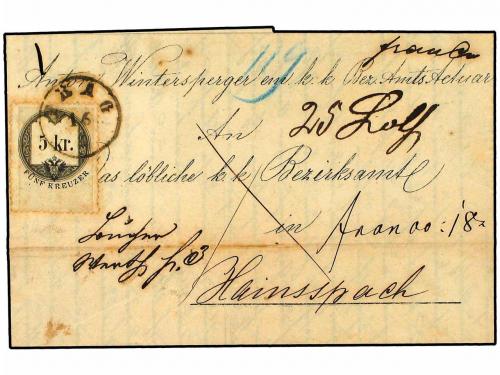 franco
119
Anton Wintersperger em. k. k. Bez. Amts Actuar
PRAG
16
An 25 Loth
5 kr.
FÜNF KREUZER
Das löbliche k. k. Bezirksamt
in
Bücher
Werth f.
Hainsspach